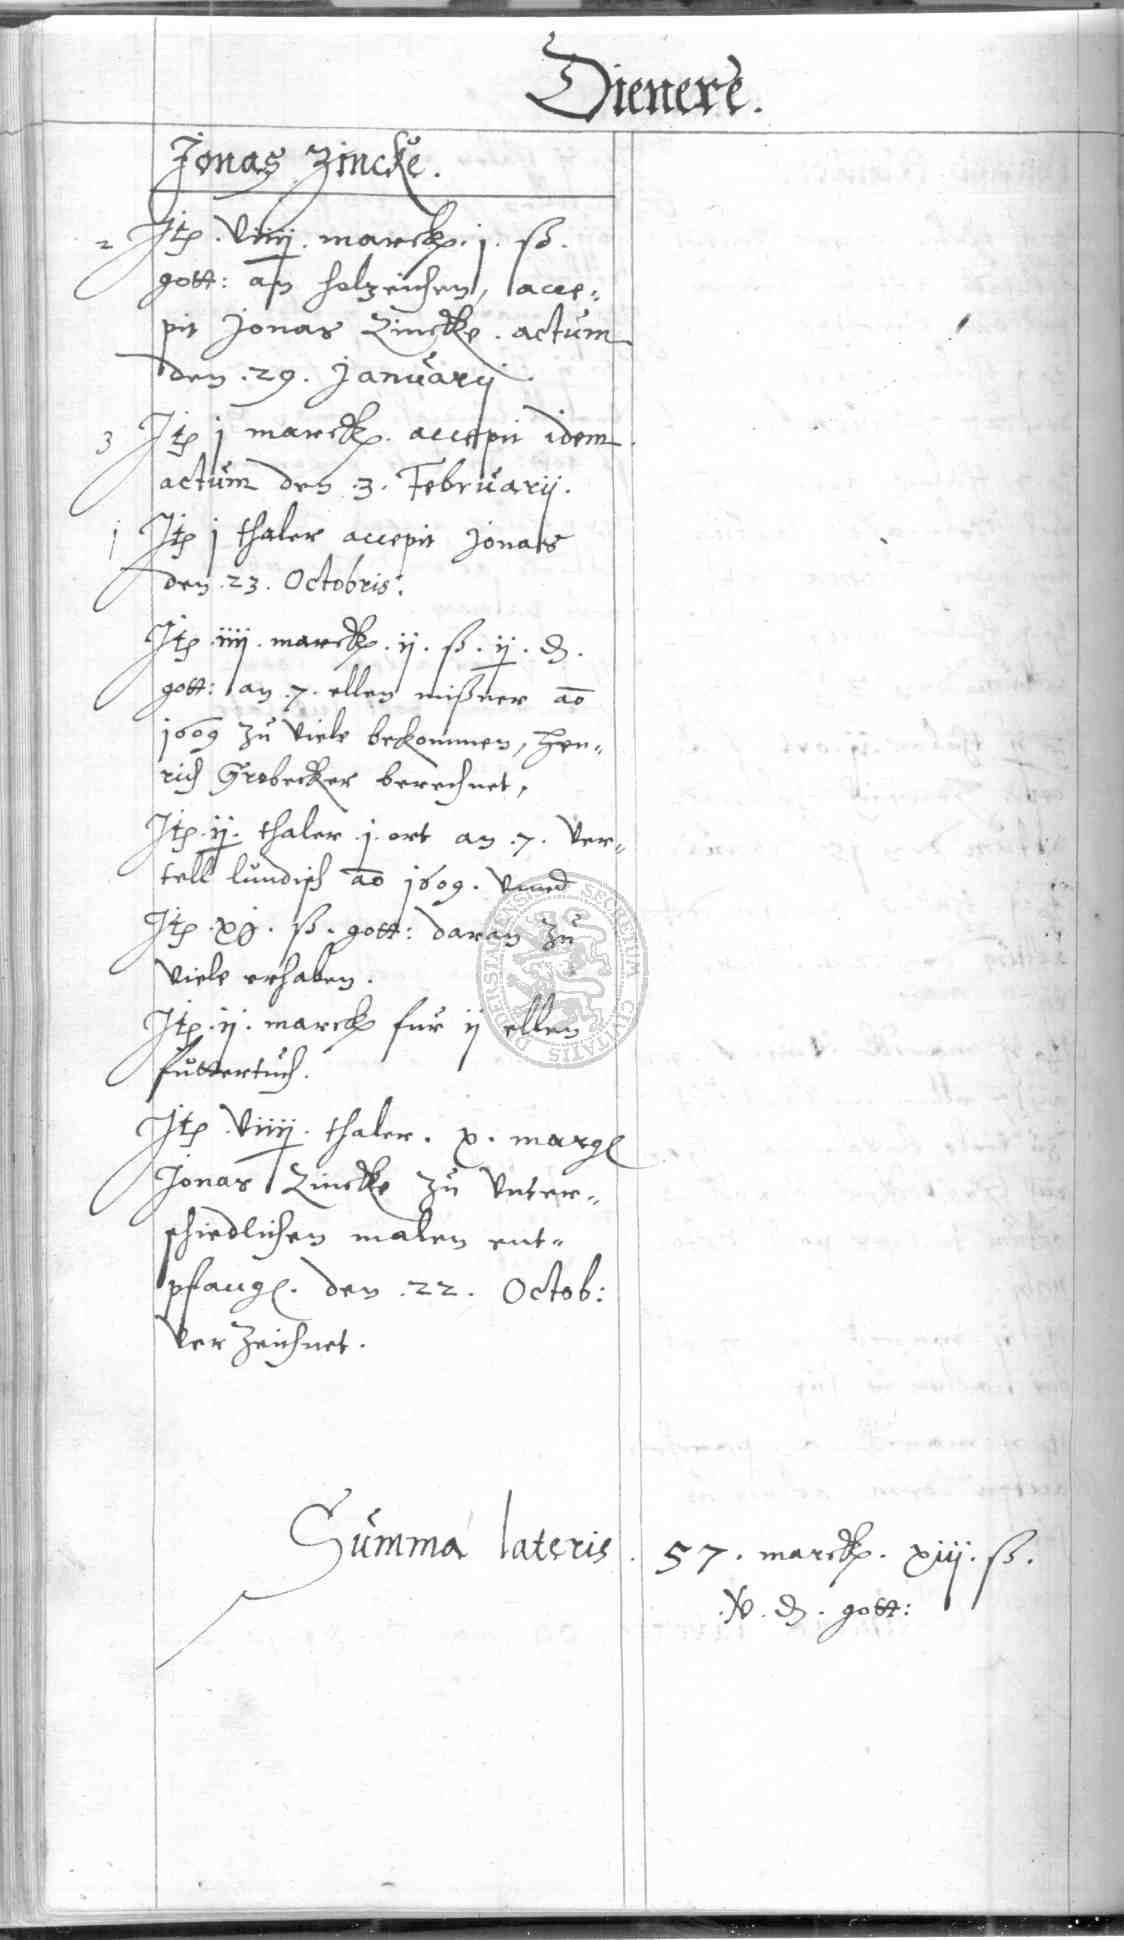 Dienere.
Jonas Zincke.
2 Jtem viiij. marck. j. ß.
gott: an holzeichen, acce=
pit Jonas Zincke. actum
den .29. Januarij.
3 Jtem j marck. accepit idem
actum den .3. Februarij.
j Jtem j thaler accepit Jonas
den .23. Octobris.
Jtem .iiij. marck. ij. ß. ij. d.
gott: an .7. ellen mißner ao
1609 zu viele bekommen, Hen=
rich Grobecker berechnet,
Jtem .ij. thaler .j. ort an .7. ver=
tell lundisch ao 1609. vnned
Jtem .xj. ß. gott: daran zu
viele erhaben.
Jtem .ij. marck fur ij ellen
futtertuch.
Jtem .viiij. thaler. x. margl
Jonas Zincke zu vnter=
schiedlichen malen ent=
pfangl. den .22. Octob:
verzeichnet.
Summa lateris. 57. marck. xiij. ß.
.v. d. gott:
SECRETUM CIVITATIS DUDERSTADENSIS